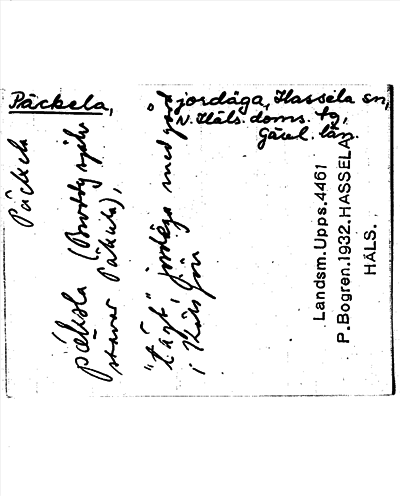 Päckela, jordäga, Hassela sn,
N. Häls. doms. tg,
Gävl. län.
Päckela
päkola (Brottbyggare
stavar Päkela),
"tägt" jordäga med gård
i Kölsjön
Landsm.Upps.4461
P.Bogren.1932.HASSELA
HÄLS.